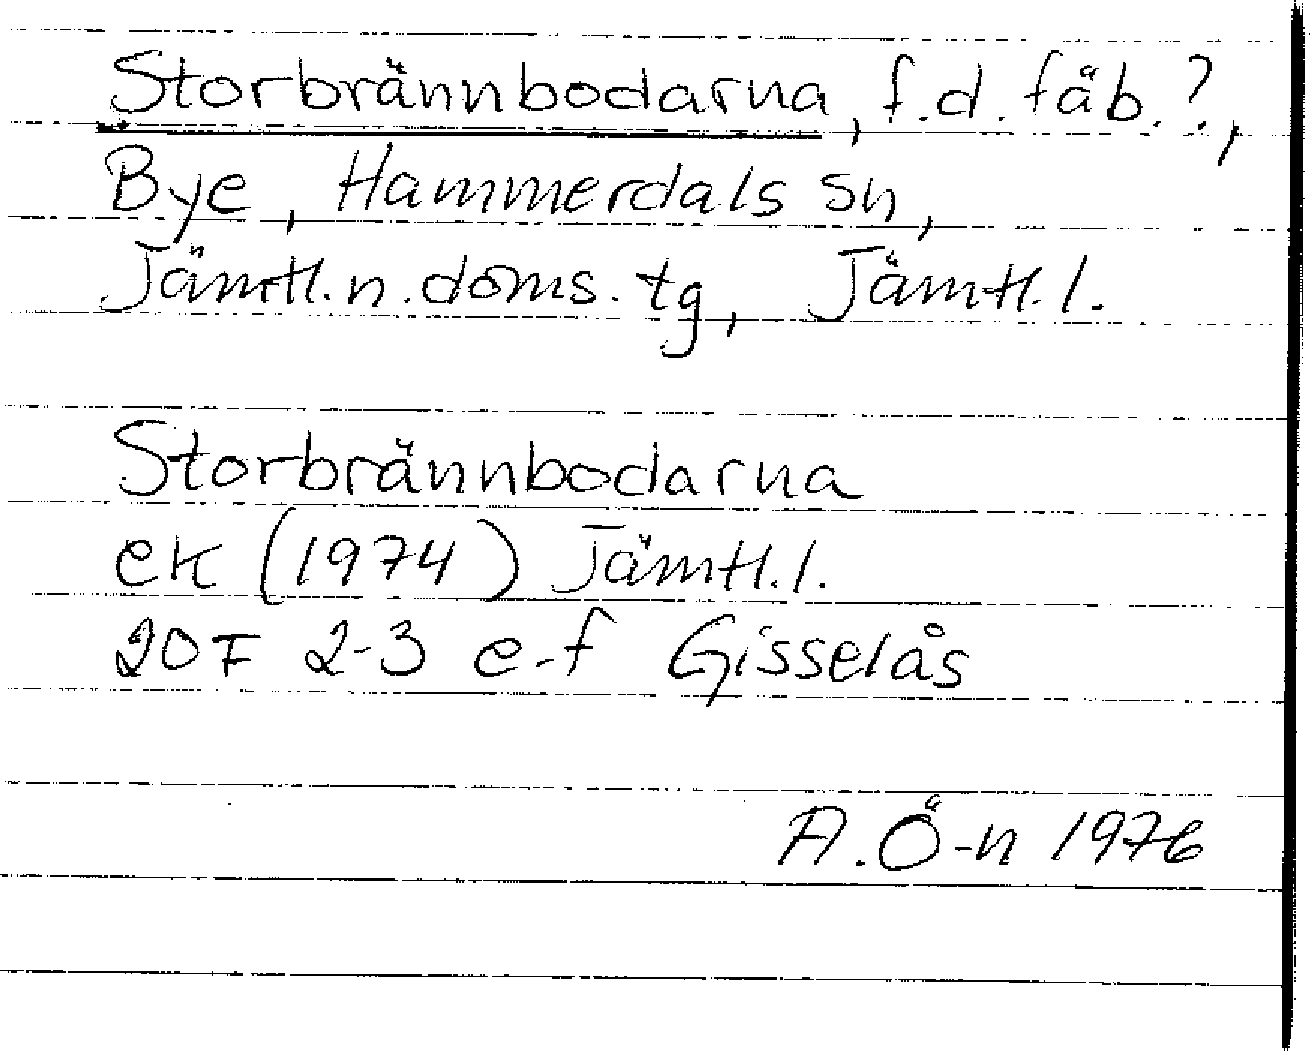 Storbrännbodarna, f.d. fäb.?,
Bye, Hammerdals sn,
Jämtl.n.doms.tg, Jämtl.l.
Storbrännbodarna
ek (1974) Jämtl.l.
20F 2-3 e-f Gisselås
A.Ö-n 1976